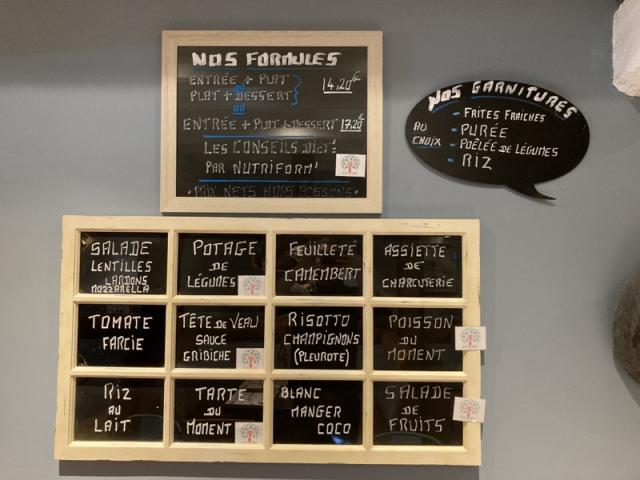 NOS FORMULES
ENTRÉE + PLAT
OU
PLAT + DESSERT
14,20€
OU
ENTRÉE + PLAT + DESSERT 17,20€
LES CONSEILS DIÉT'
PAR NUTRIFORM'
• PRIX NETS HORS BOISSONS •
NOS GARNITURES
AU CHOIX
- FRITES FRAICHES
- PURÉE
- POÊLÉE DE LÉGUMES
- RIZ
SALADE
LENTILLES
LARDONS
MOZZARELLA
POTAGE
DE
LÉGUMES
FEUILLETÉ
CAMEMBERT
ASSIETTE
DE
CHARCUTERIE
TOMATE
FARCIE
TÊTE DE VEAU
SAUCE
GRIBICHE
RISOTTO
CHAMPIGNONS
(PLEUROTE)
POISSON
DU
MOMENT
RIZ
AU
LAIT
TARTE
DU
MOMENT
BLANC
MANGER
COCO
SALADE
DE
FRUITS